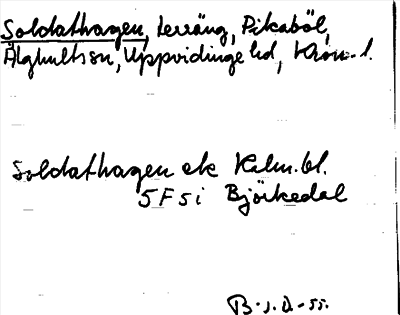 Soldathagen, terräng, Pikaböl,
Älghults sn, Uppvidinge hd, Kron. l.
Soldathagen ek Kalm. bl.
5F 5i Björkedal
B. J. D. -55.